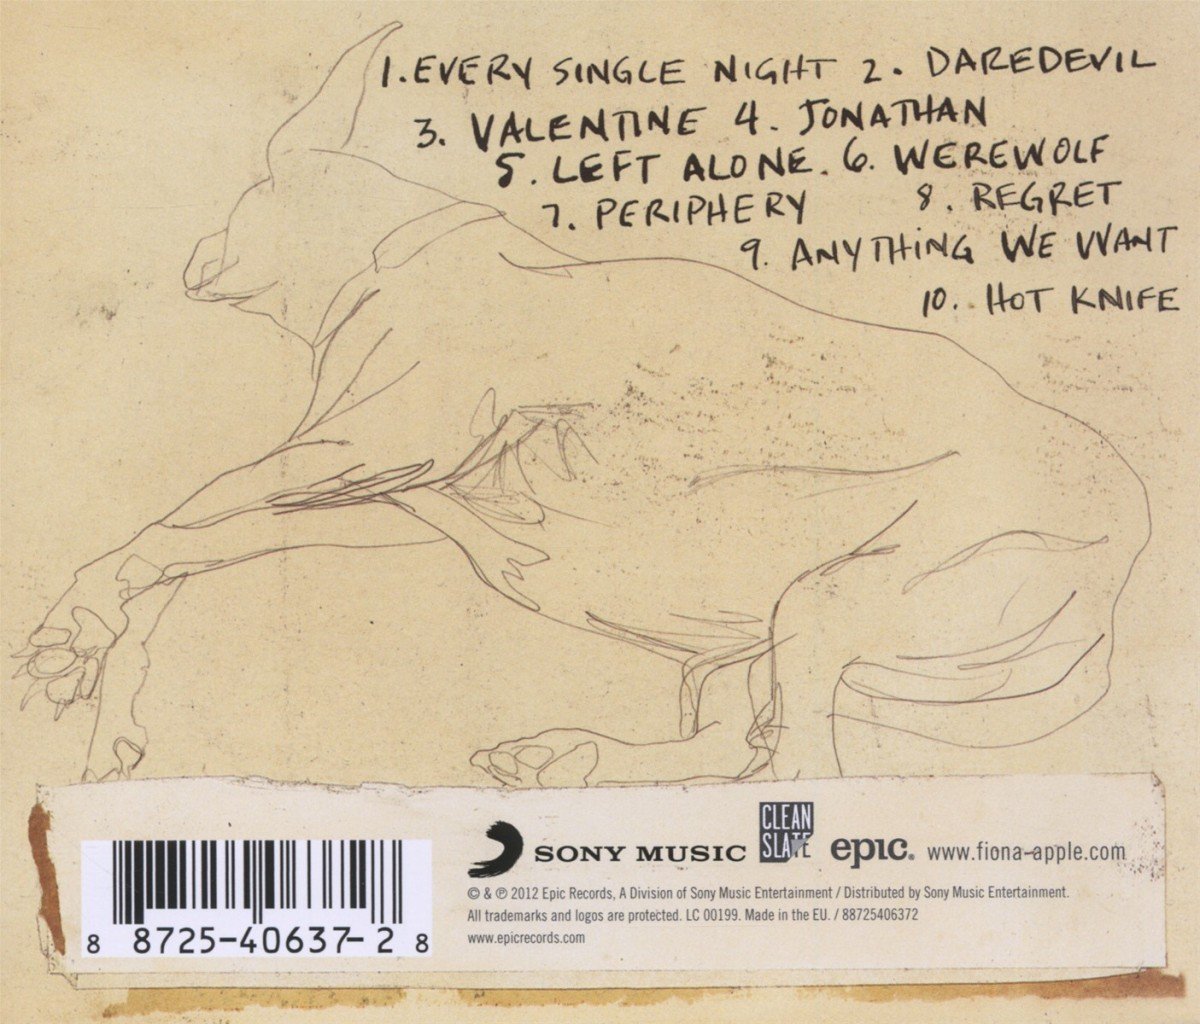 1. EVERY SINGLE NIGHT 2. DAREDEVIL
3. VALENTINE 4. JONATHAN
5. LEFT ALONE. 6. WEREWOLF
7. PERIPHERY 8. REGRET
9. ANYTHING WE WANT
10. HOT KNIFE
8 8725-40637-2 8
SONY MUSIC
CLEAN
SLATE
epic.
www.fiona-apple.com
© & ℗ 2012 Epic Records, A Division of Sony Music Entertainment / Distributed by Sony Music Entertainment.
All trademarks and logos are protected. LC 00199. Made in the EU. / 88725406372
www.epicrecords.com